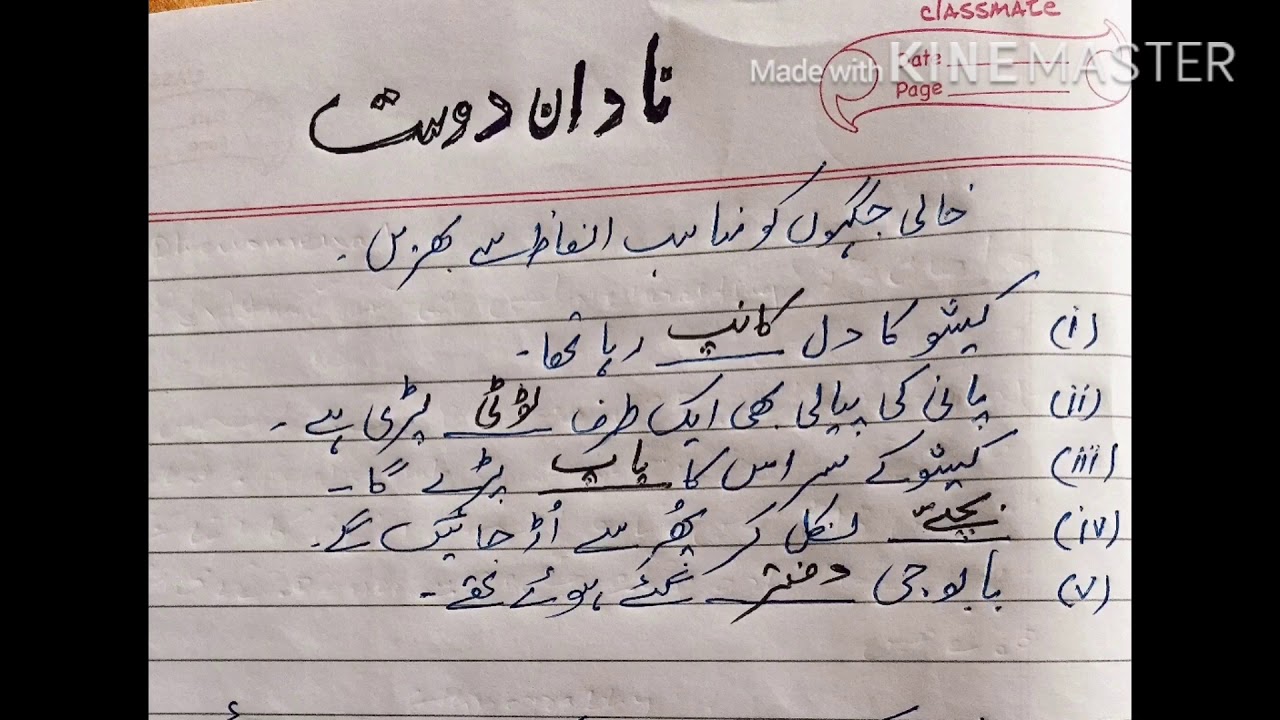 classmate
Date
Page
Made with KINEMASTER
نادان دوست
خالی جگہوں کو مناسب الفاظ سے بھریں۔
(i) کیشو کا دل کانپ رہا تھا۔
(ii) پانی کی پیالی بھی ایک طرف ٹوٹی پڑی ہے۔
(iii) کیشو کے سر اس کا پاپ پڑے گا۔
(iv) بچے نکل کر پھُر سے اُڑ جائیں گے۔
(v) بابو جی دفتر گئے ہوئے تھے۔